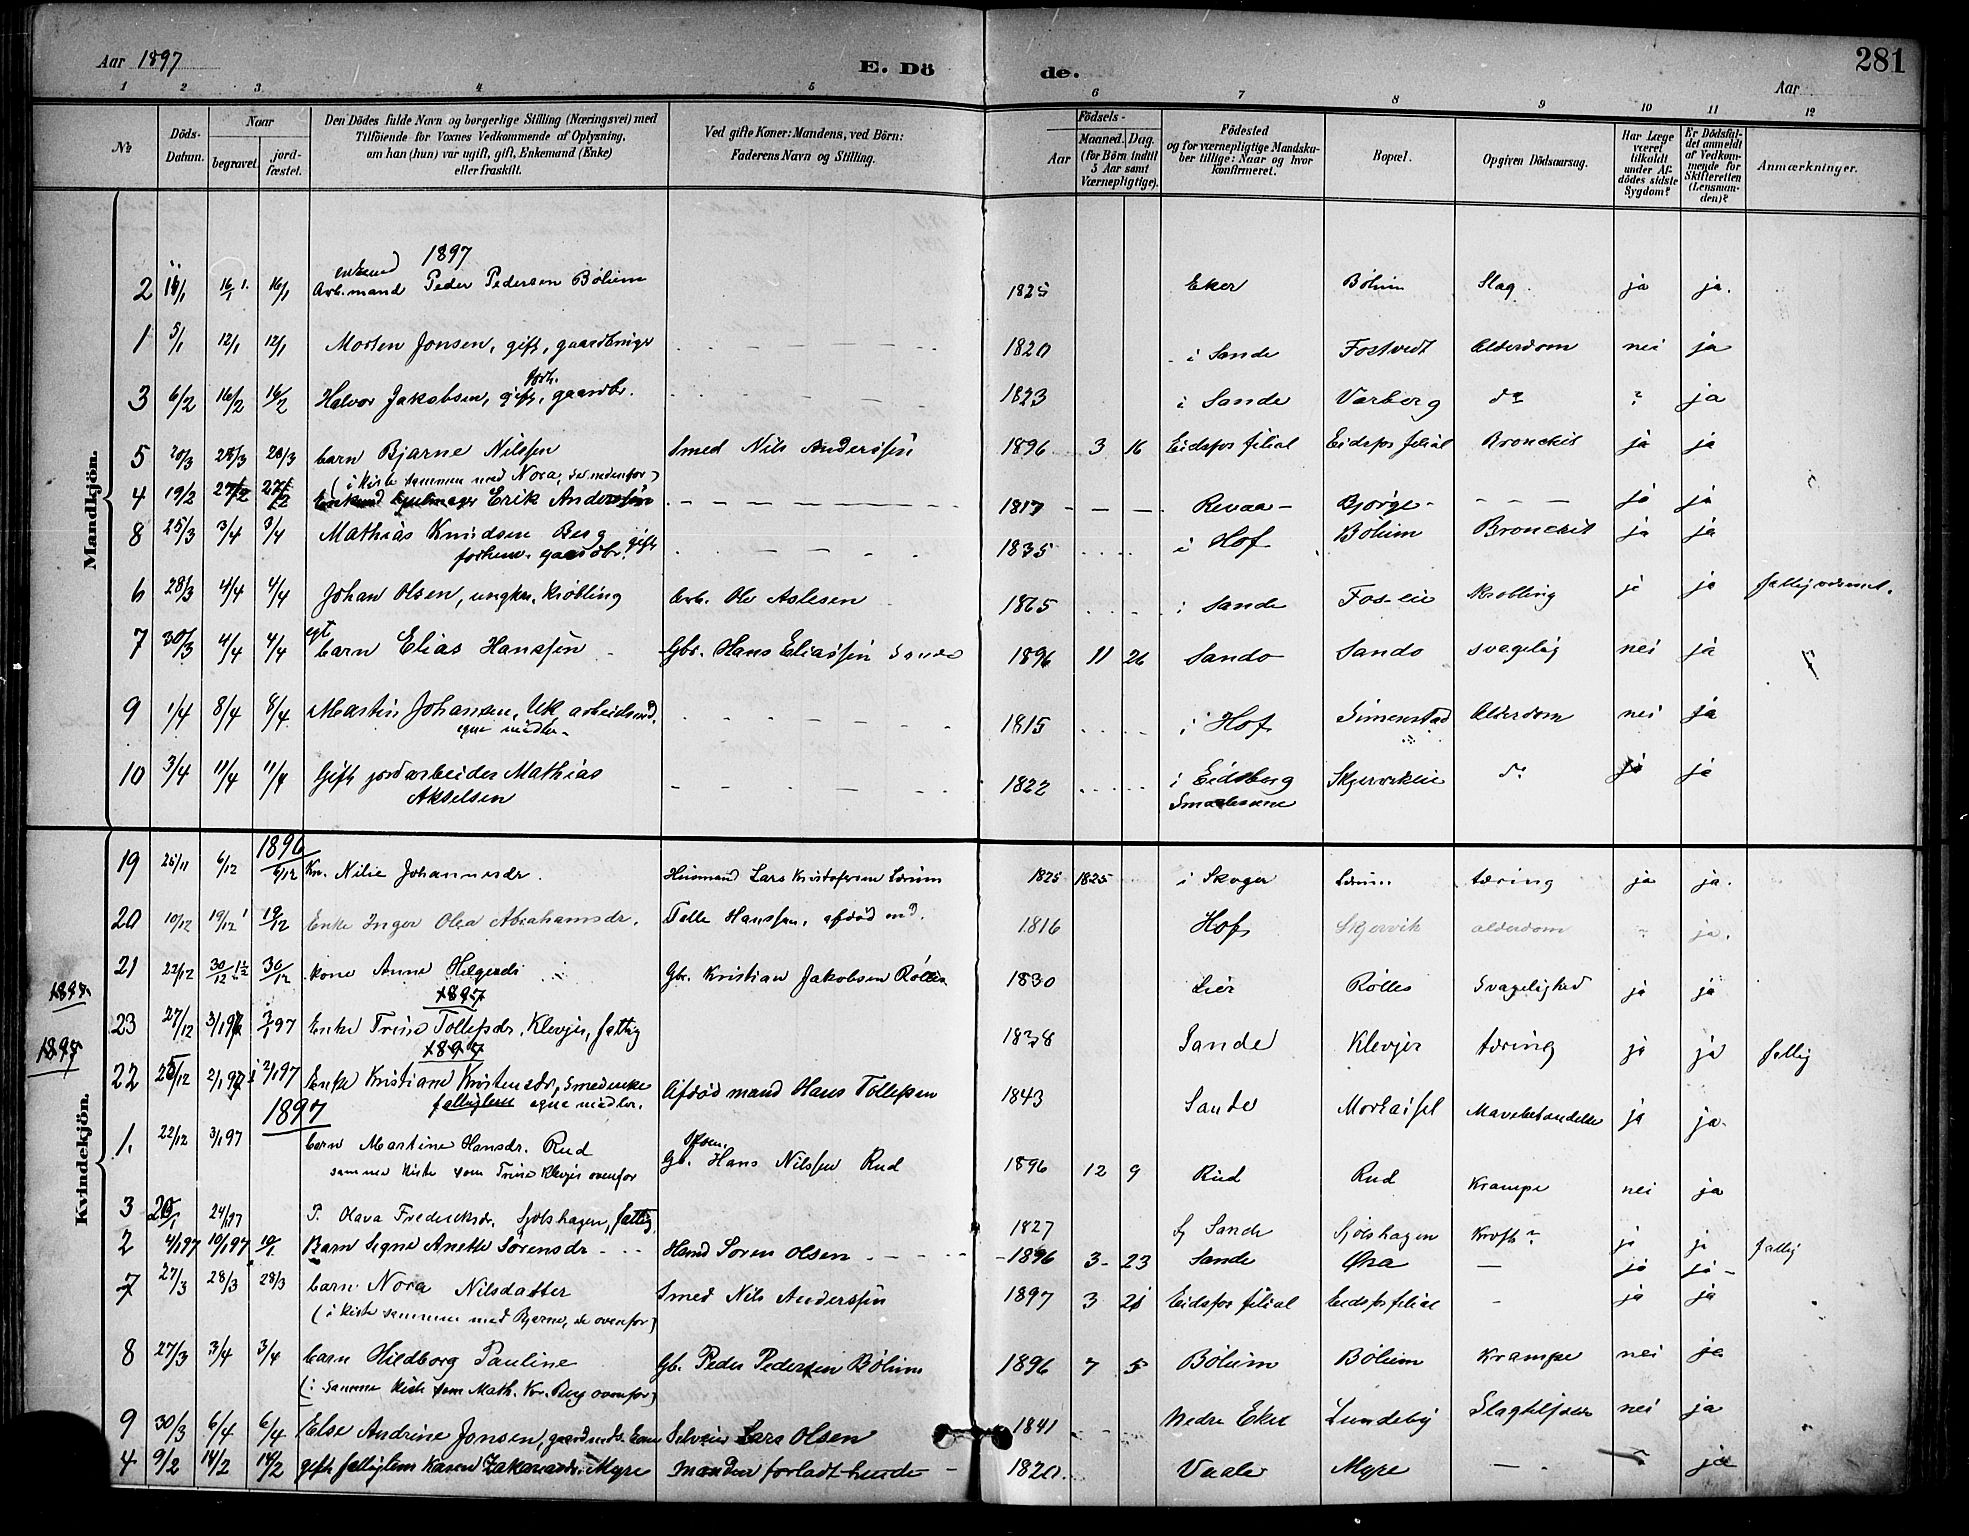 Aar 1897 E. Dö de. Aar 281
1 2 3 4 5 6 7 8 9 10 11 12
№ Döds-Datum. Naar begravet. jord-fæstet. Den Dödes fulde Navn og borgerlige Stilling (Næringsvei) med Tilföiende for Voxnes Vedkommende af Oplysning, om han (hun) var ugift, gift, Enkemand (Enke) eller fraskilt. Ved gifte Koner: Mandens, ved Börn: Faderens Navn og Stilling. Födsels- Aar Maaned. Dag. (for Börn indtil 5 Aar samt Værnepligtige). Födested og for værnepligtige Mandska-ber tillige: Naar og hvor konfirmeret. Bopæl. Opgiven Dödsaarsag. Har Læge været tilkaldt under Af-dödes sidste Sygdom? Er Dödsfal-det anmeldt af Vedkom-mende for Skifteretten (Lensman-den)? Anmærkninger.
Mandkjön.
1897
2 16/1 16/1 Arb.mand Peder Pedersen Bölum 1825 Eker Bölum Slag ja ja.
1 5/1 12/1 12/1 Morten Jonsen, gift, gaardbruger 1820 i Sande Fostvedt Alderdom nei ja
3 6/2 16/2 16/2 Halvor Jakobsen, gift, forh. gaardbr. 1823 i Sande Varberg do ? ja
5 20/3 28/3 28/3 barn Bjarne Nilssen Smed Nils Anderssen 1896 3 16 Eidsfos filial Eidsfos filial Bronchit ja ja
(i kiste sammen med Nora, se nedenfor)
4 19/2 27/2 27/2 Erik Anderssen 1817 Revaa Bjørge ja ja
8 25/3 3/4 3/4 Mathias Knudsen Berg gift 1835 i Hof Bölum Bronchit ja ja
forhenv. gaardbr.
6 28/3 4/4 4/4 Johan Olsen, ungkar, krøbling Arb. Ole Aslesen 1865 i Sande Fos-eie Krøbling ja ja
7 30/3 4/4 4/4 egt barn Elias Hanssen Gbr. Hans Eliassen Sando 1896 11 26 Sando Sando svagelig nei ja
9 1/4 8/4 8/4 Martin Johansen, Uk arbeidsmd. 1815 i Hof Simenstad Alderdom nei ja
egne midler.
10 3/4 11/4 11/4 Gift jordarbeider Mathias 1822 i Eidsberg Skjervikeie do ja ja
Akselsen Smaalenene
Kvindekjön.
1896
19 6/12 6/12 Kv. Nilie Johannesdr. Husmand Lars Kristofersen 1825 1825 i Skoger tæring ja ja.
20 10/12 19/12 19/12 Enke Inger Olea Abrahamsdr. Tolle Hanssen, afdød md. 1816 Hof Skjervik alderdom ja.
21 22/12 30/12 30/12 kone Anne Helgesd. Gb. Kristian Jakobsen Rølles 1830 Lier Rølles Svagelighed ja ja
1897
23 27/12 3/1 97 Enke Trine Tollefsdr. Klevjer, fattig 1838 Sande Klevjer tæring ja ja fattig
1897
22 25/12 2/1 97 2/1 97 Enke Kristiane Kristensdr, Smedenke Afdød mand Hans Tollefsen 1843 Sande Mavebetændelse ja ja.
fattiglem egne midler.
1897
1. 22/12 3/1 97 barn Martine Hansdr. Rud Gb. Hans Nilssen Rud 1896 12 9 Rud Rud Krampe nei ja
samme kiste som Trine Klevjer ovenfor
3 24/1 97 P. Olava Frederiksdr. Sjølshagen, fattig 1827 Sande Sjølshagen Kræft? ja ja fattig
2 4/1 97 10/1 97 10/1 Barn Signe Anette Sørensdr Søren Olsen 1896 3 23 Sande Øra ja ja
7 27/3 28/3 28/3 barn Nora Nilsdatter Smed Nils Anderssen 1897 3 21 Eidsfos filial Eidsfos filial ja ja
(i kiste sammen med Bjarne, se ovenfor)
8 27/3 3/4 3/4 barn Hildborg Pauline Gb. Peder Pedersen Bölum 1896 7 5 Bölum Bölum Krampe nei ja
(i samme kiste som Math. Kn. Berg ovenfor)
9 30/3 6/4 6/4 Else Andrine Jonsen, gaardmds. kone Selveier Lars Olsen 1841 Nedre Eker Lundeby nei ja
4 9/2 14/2 14/2 gift fattiglem Karen Zakariasdr. Myre Manden forladt hende 1820 Vaale Myre ? ja